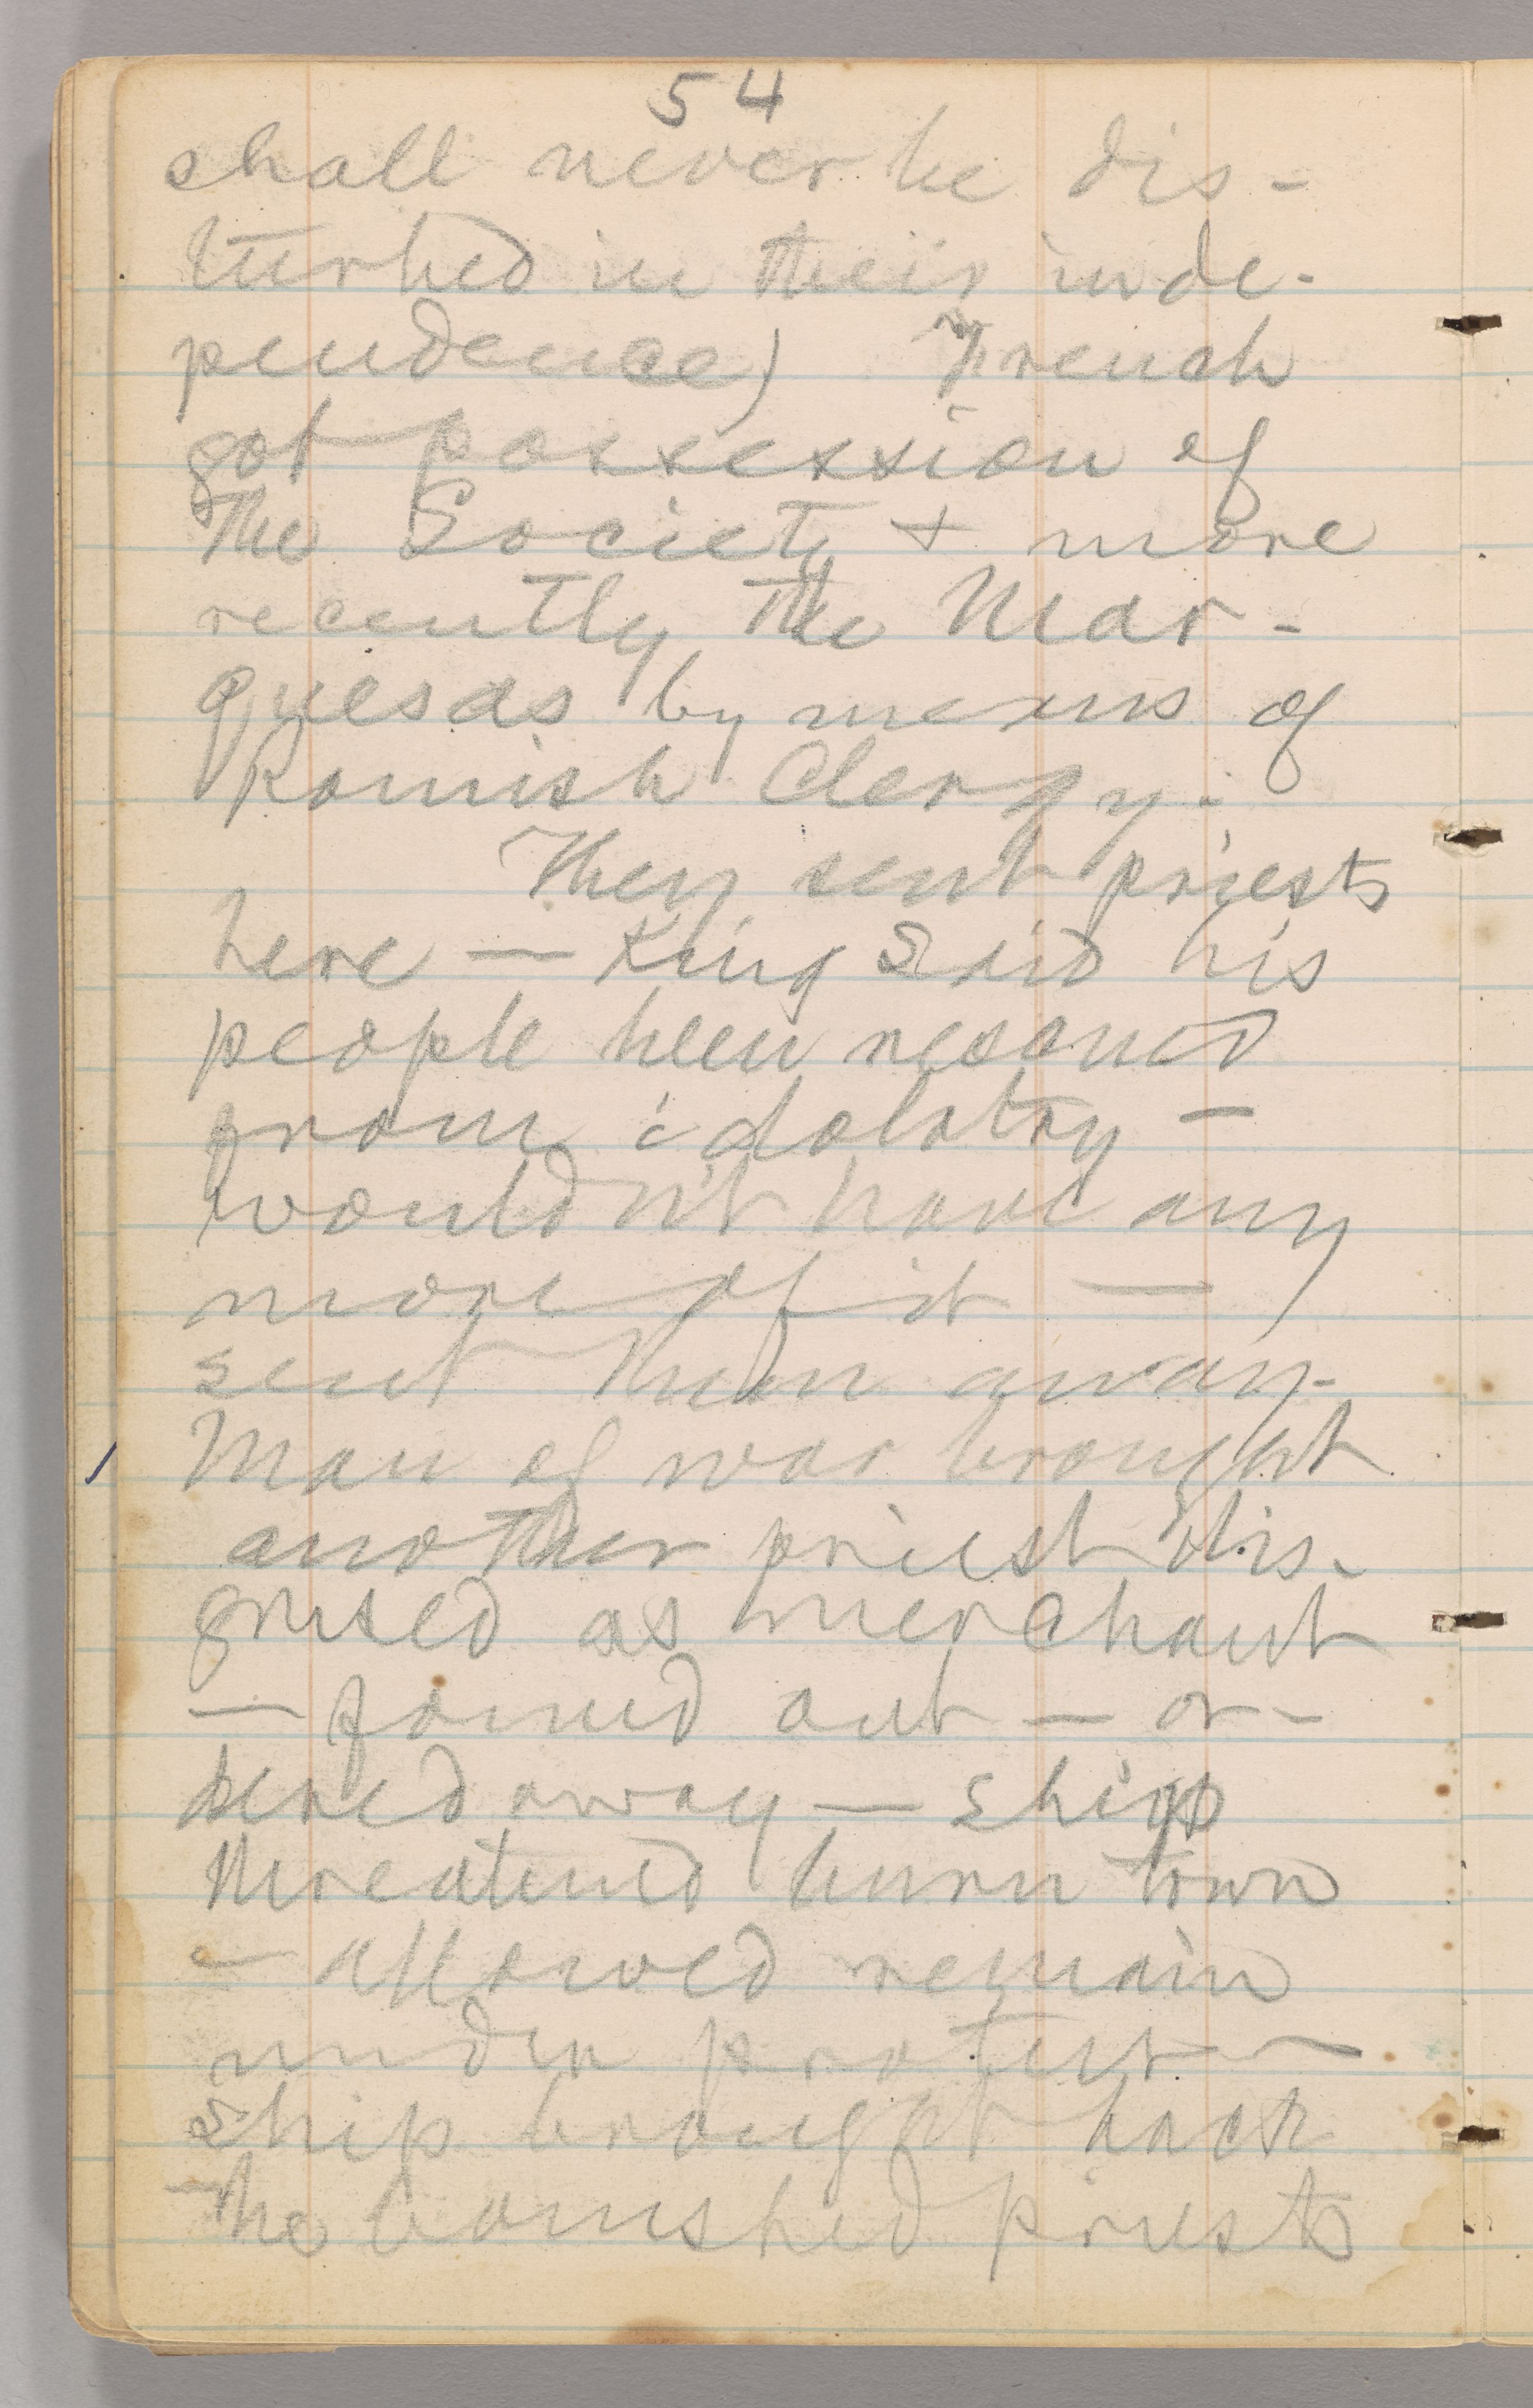 54
shall never be dis-
turbed in their inde-
pendence) French
got possession of
the Society + more
recently the Mar-
quesas by means of
Romish Clergy.
They sent priests
here — King Said his
people been rescued
from idolatry —
wouldn't have any
more of it —
sent them away.
Man of war brought
another priest dis-
guised as merchant
— found out — or-
dered away — ship
threatened burn town
— allowed remain
under protest —
Ship brought back
the banished priests